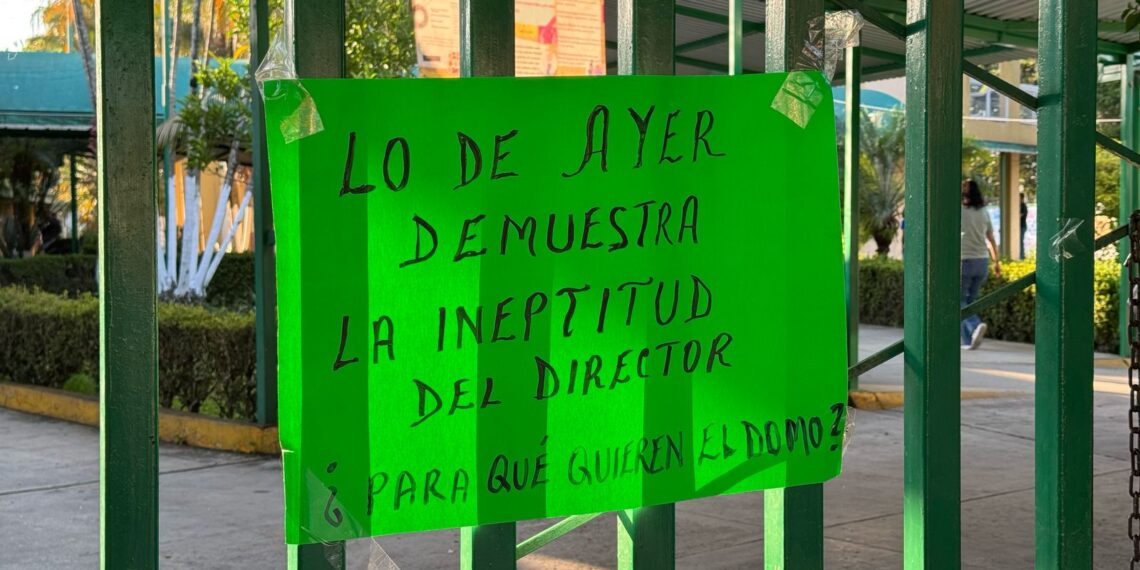 LO DE AYER
DEMUESTRA
LA INEPTITUD
DEL DIRECTOR
¿PARA QUÉ QUIEREN EL DOMO?